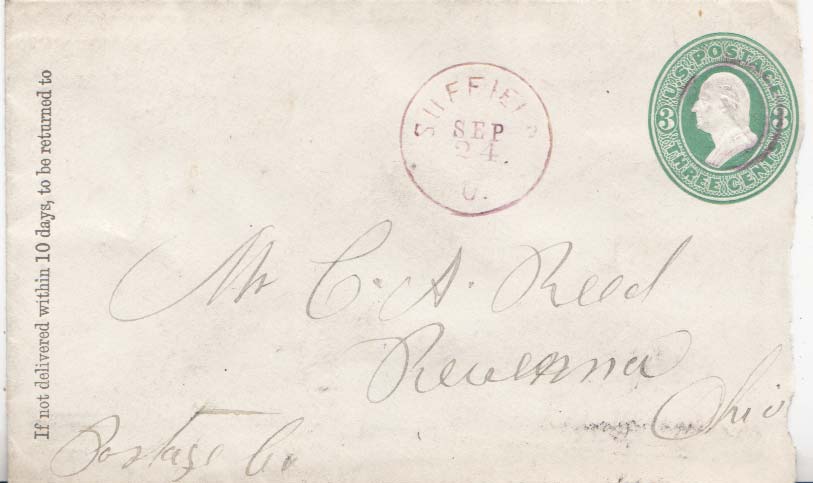 If not delivered within 10 days, to be returned to
SUFFIELD
SEP
24
O.
U.S. POSTAGE
3 3
THREE CENTS
Mr C. A. Reed
Ravenna
Ohio
Portage Co